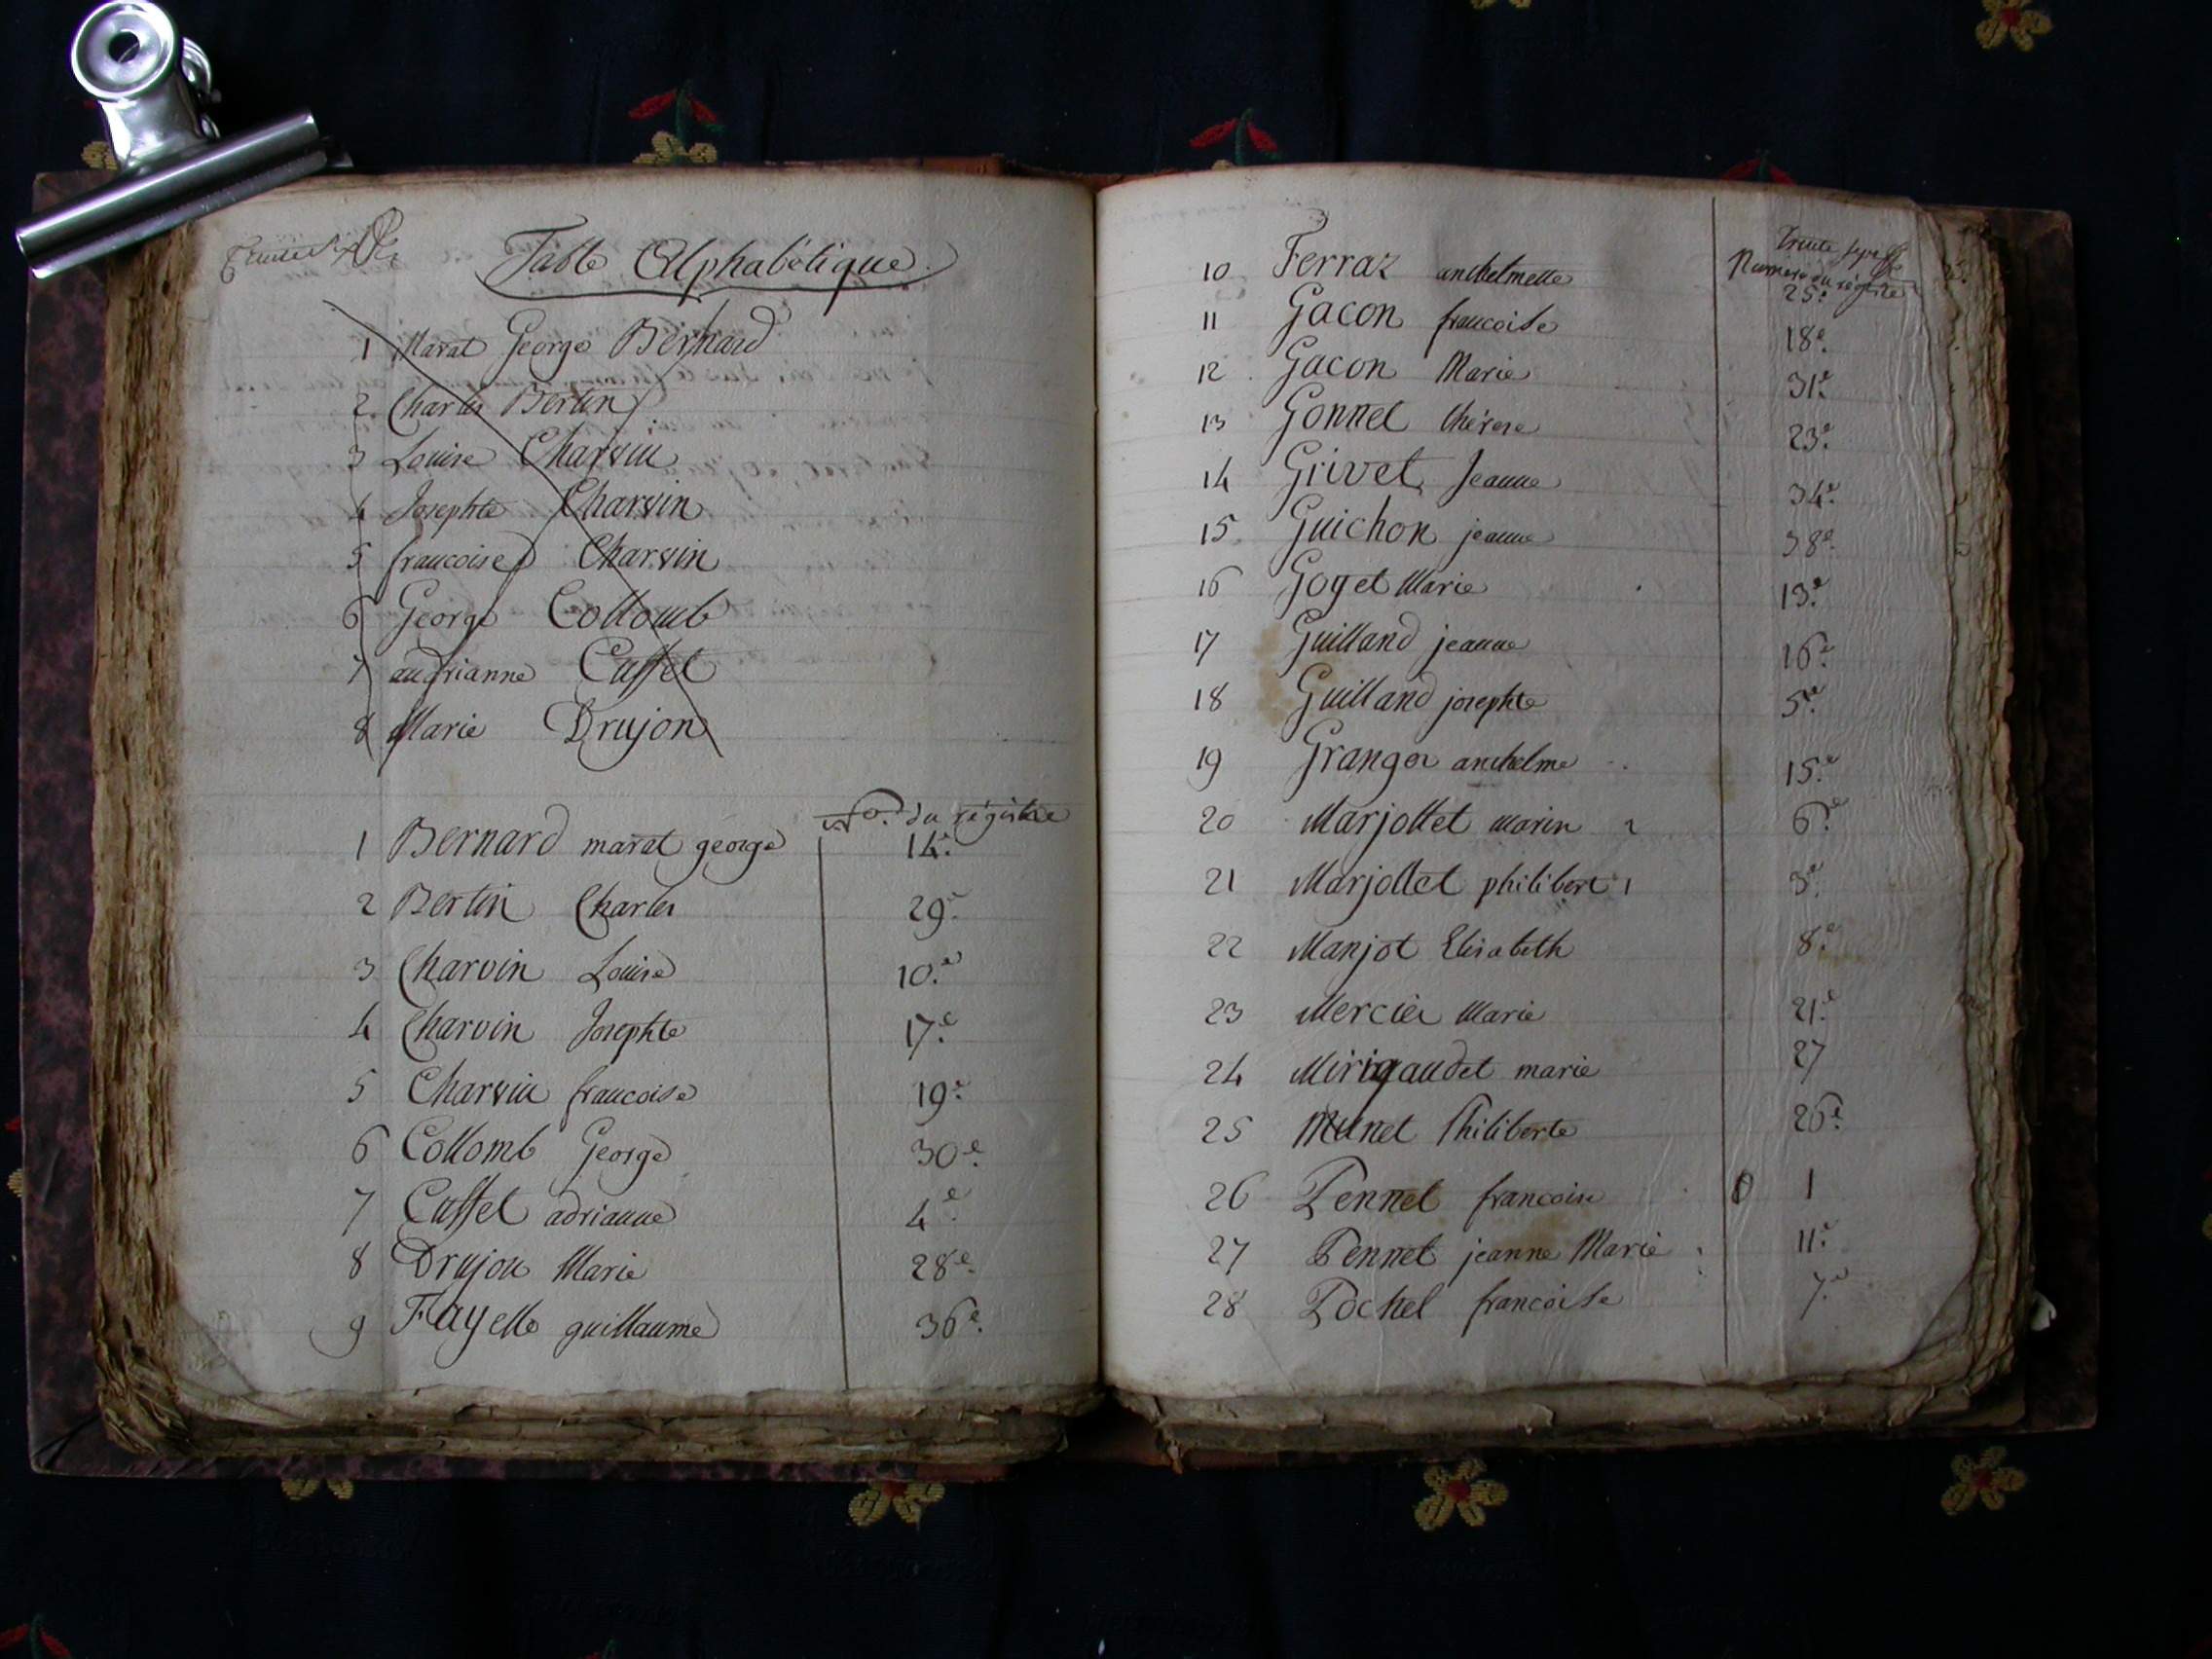 Table Alphabétique
1 Marat George Bernard
2. Charles Bertin
3 Louise Charvin
4 Josephte Charvin
5 francoise Charvin
6 George Collomb
7 audrianne Cusset
8 Marie Drujon
No. du régistre
1 Bernard marat george 14.e
2 Bertin Charles 29.e
3 Charvin Louise 10.e
4 Charvin Josephte 17.e
5 Charvin francoise 19.e
6 Collomb George 30.e
7 Cusset adrianne 4.e
8 Drujon Marie 28.e
9 Fayelle guillaume 36.e
Trente sept
Numéro du régistre
10 Ferraz anthelmette 25.e
11 Gacon francoise 18.e
12 Gacon Marie 31.e
13 Gonnet thérese 23.e
14 Grivet Jeanne 34.e
15 Guichon jeanne 38.e
16 Goyet Marie 13.e
17 Guilland jeanne 16.e
18 Guilland josephte 5.e
19 Granger anthelme 15.e
20 Marjollet marin 6.e
21 Marjollet philibert 3.e
22 Manjot Elisabeth 8.e
23 Mercier Marie 21.e
24 Mirigaudet marie 27
25 Munet Philiberte 26.e
26 Pennet francoise 1
27 Pennet jeanne Marie 11.e
28 Pochet francoise 7.e